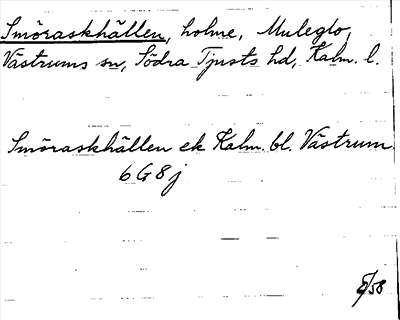 Smöraskhällen, holme, Muleglo,
Västrums sn, Södra Tjusts hd, Kalm. l.
Smöraskhällen ek Kalm. bl. Västrum
6 G 8 j
/58